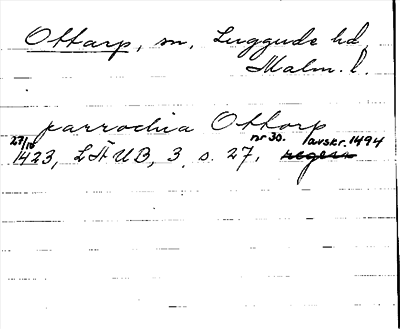 Ottarp, sn, Luggude hd,
Malm. l.
parrochia Ottorp
27/10 1423, LÄUB, 3 s. 27, nr 30. avskr. 1494